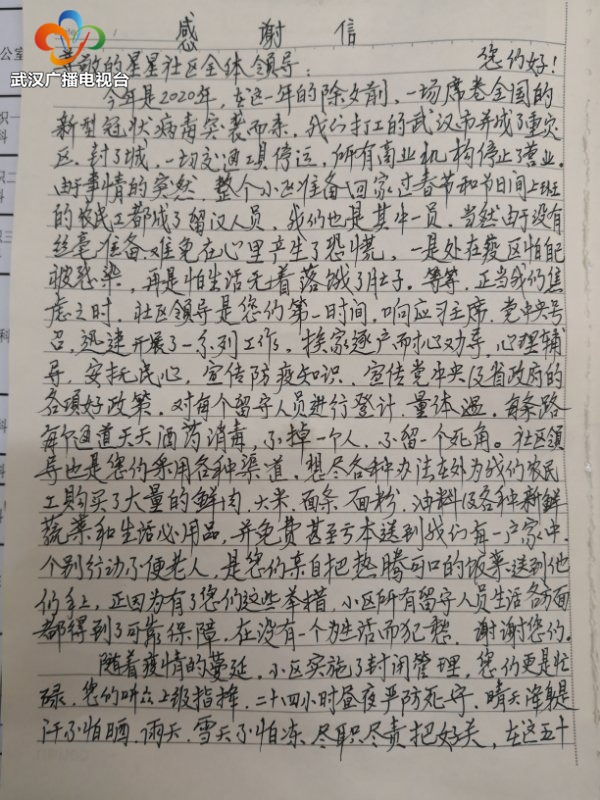 感谢信
武汉广播电视台
尊敬的星星社区全体领导：
您们好！
今年是2020年，在这一年的除夕前，一场席卷全国的
新型冠状病毒突袭而来，我们打工的武汉市并成了重灾
区，封了城，一切交通工具停运，所有商业机构停止了营业。
由于事情的突然，整个小区准备回家过春节和节日间上班
的农民工都成了留汉人员，我们也是其中一员，当然由于没有
丝毫准备难免在心里产生了恐慌，一是处在疫区怕自己
被感染，再是怕生活无着落饿了肚子。等等，正当我们焦
虑之时，社区领导是您们第一时间，响应习主席，党中央号
召，迅速开展了一系列工作，挨家逐户而扣心劝导，心理辅
导，安抚民心，宣传防疫知识，宣传党中央及省政府的
各项好政策，对每个留守人员进行登计，量体温，每条路
每个通道天天洒药消毒，不掉一个人，不留一个死角。社区领
导也是您们采用各种渠道，想尽各种办法在外为我们农民
工购买了大量的鲜肉，大米，面条，面粉，油料及各种新鲜
蔬菜和生活必用品，并免费甚至亏本送到我们每一户家中，
个别行动不便老人，是您们亲自把热腾可口的饭菜送到他
们手上，正因为有了您们这些举措，小区所有留守人员生活各方面
都得到了可靠保障，在没有一个为生活而犯愁，谢谢您们。
随着疫情的蔓延，小区实施了封闭管理，您们更是忙
碌，您们听众上级指挥，二十四小时昼夜严防死守，晴天浑身是
汗不怕晒，雨天，雪天不怕冻，尽职尽责把好关，在这五十